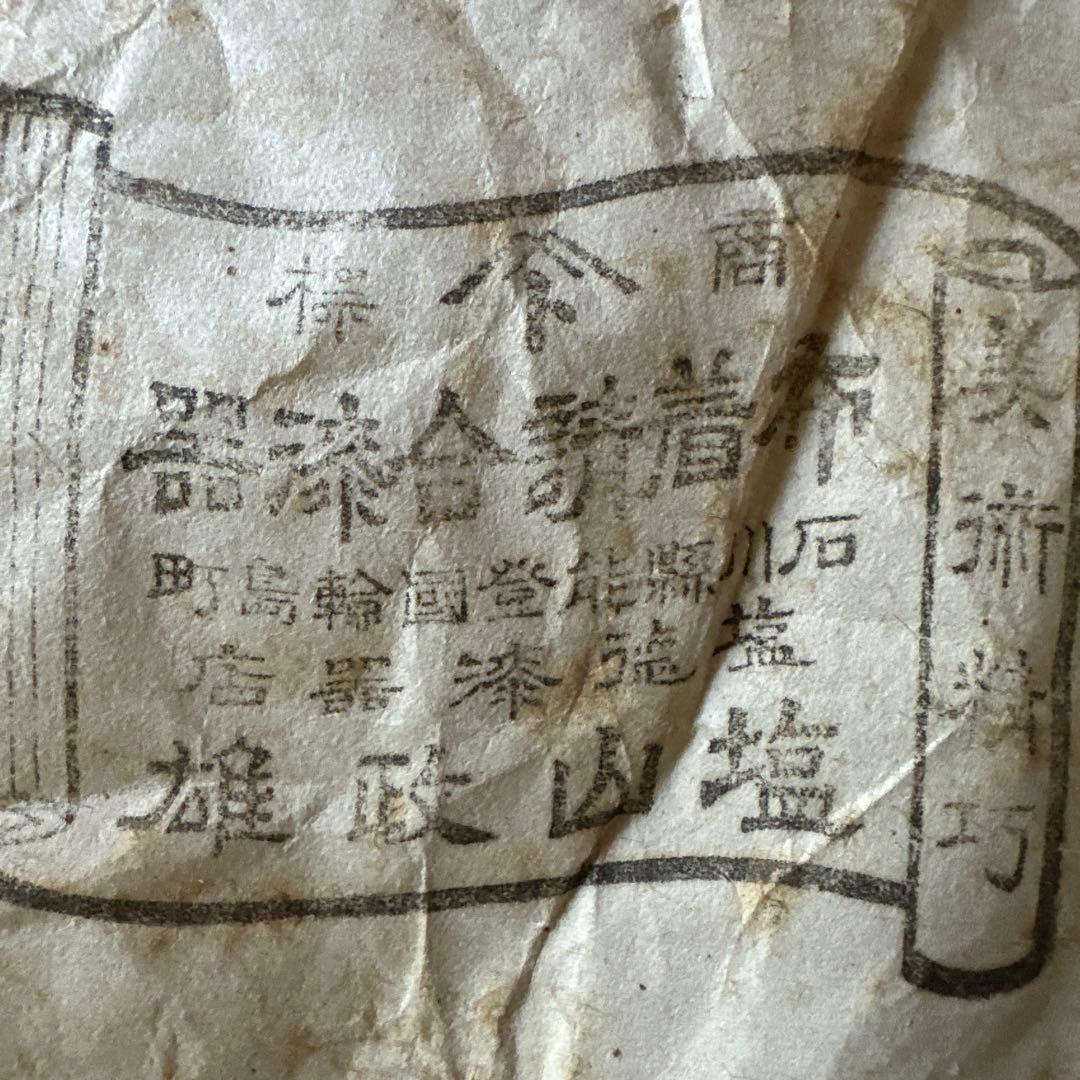 美術精巧
商標
布着合漆器
石川縣能登國輪島町
漆器店
塩山政雄